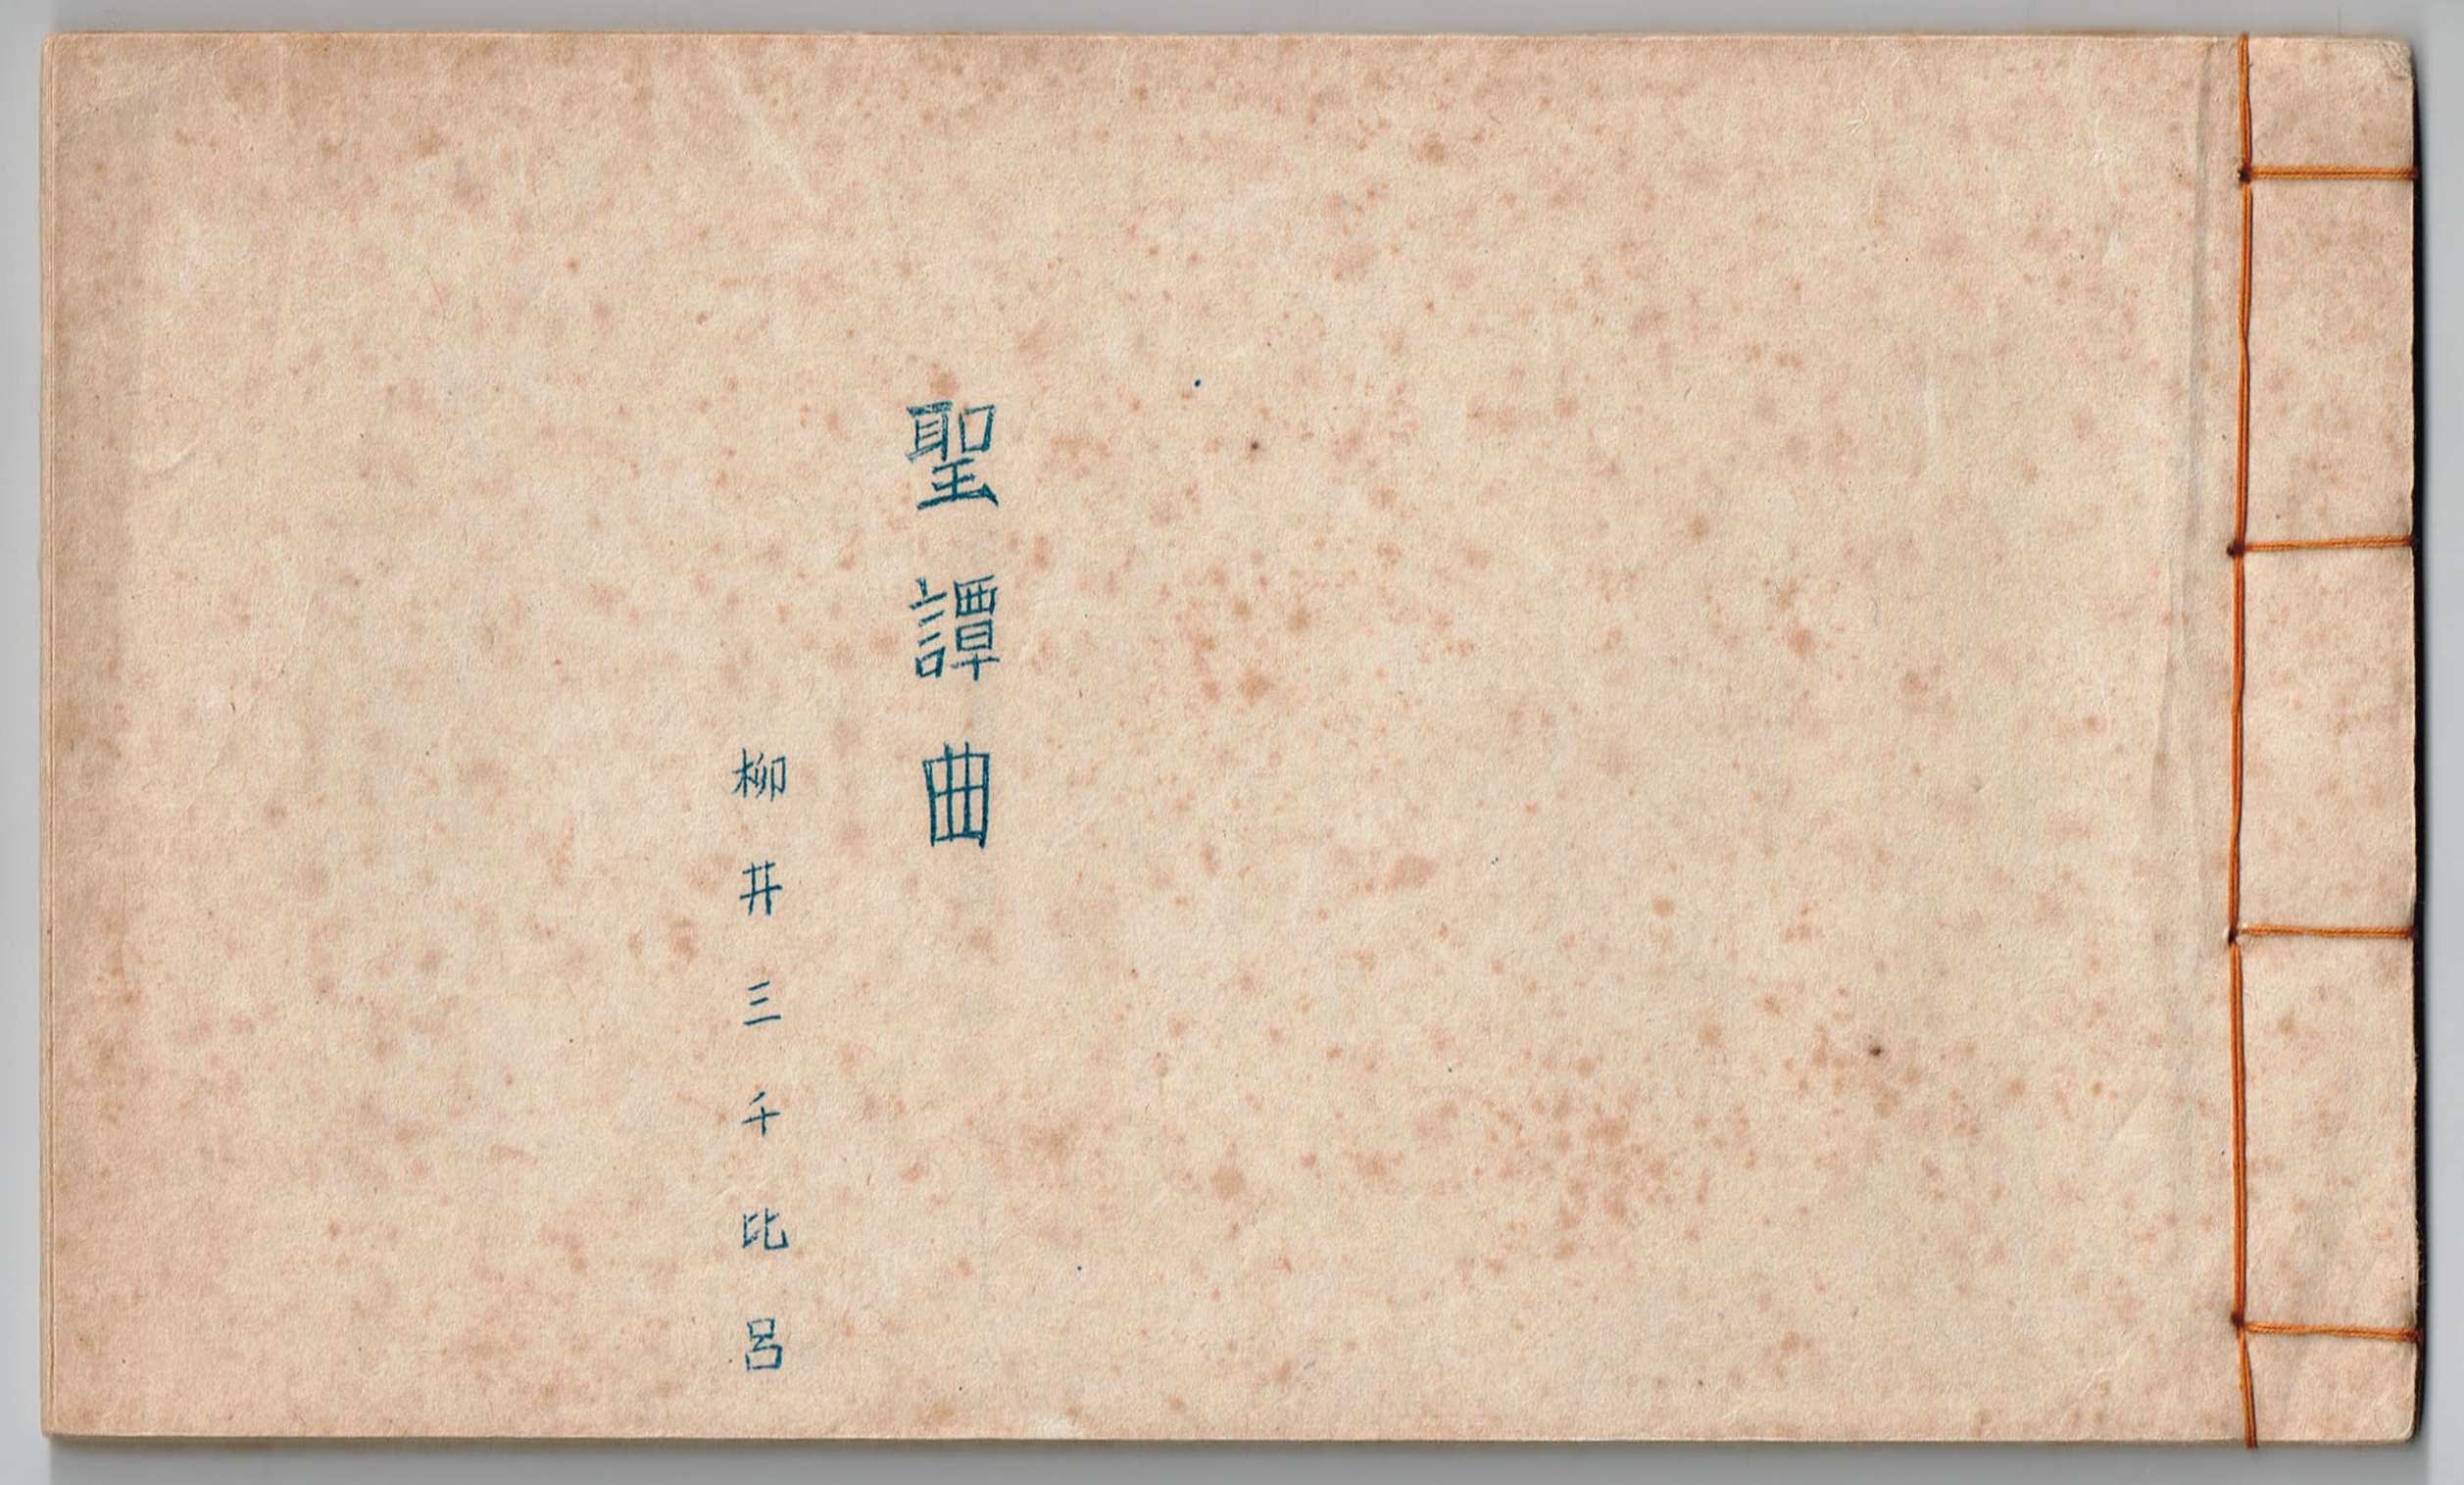 聖譚曲
柳井三千比呂